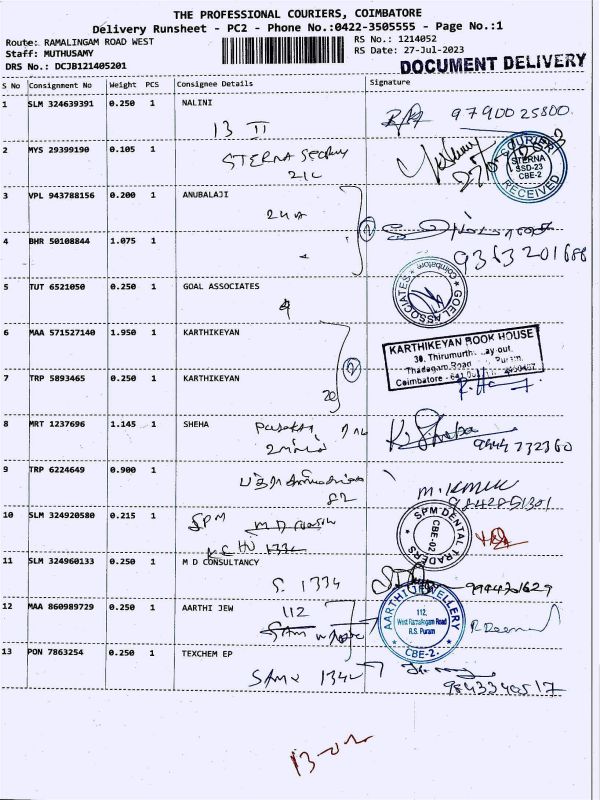 THE PROFESSIONAL COURIERS, COIMBATORE
Delivery Runsheet - PC2 - Phone No.:0422-3505555 - Page No.:1
Route: RAMALINGAM ROAD WEST
RS No.: 1214052
Staff: MUTHUSAMY
RS Date: 27-Jul-2023
DRS No.: DCJB121405201
DOCUMENT DELIVERY
S No Consignment No Weight PCS Consignee Details Signature
1 SLM 324639391 0.250 1 NALINI
9790025800
13 II
2 MYS 29399190 0.105 1
STERNA
21C
COURIER
STERNA
SSD-23
CBE-2
RECEIVED
3 VPL 943788156 0.200 1 ANUBALAJI
24A
2
4 BHR 50108844 1.075 1
9363201688
5 TUT 6521050 0.250 1 GOAL ASSOCIATES
GOAL ASSOCIATES
Coimbatore
6 MAA 571527140 1.950 1 KARTHIKEYAN
KARTHIKEYAN BOOK HOUSE
30, Thirumurthi Layout,
Thadagam Road
Puram,
Coimbatore -
2
7 TRP 5893465 0.250 1 KARTHIKEYAN
20
8 MRT 1237696 1.145 1 SHEHA
K. Sneha
9444732360
9 TRP 6224649 0.900 1
82
10 SLM 324920580 0.215 1 SPM
1334
SPM DENTAL TRADERS
CBE-02
11 SLM 324960133 0.250 1 M D CONSULTANCY
S. 1334
9944361629
12 MAA 860989729 0.250 1 AARTHI JEW
112
AARTHI JEWELLERY
112,
West Ramalingam Road
R.S. Puram
CBE-2.
13 PON 7863254 0.250 1 TEXCHEM EP
1342
9843340517
13-02